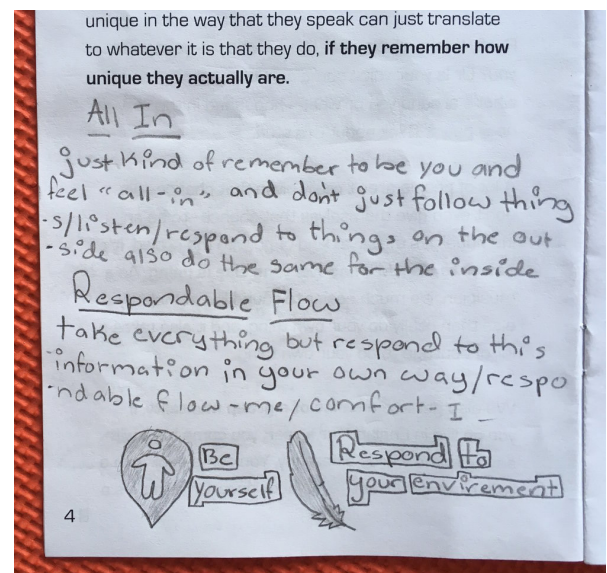 unique in the way that they speak can just translate
to whatever it is that they do, if they remember how
unique they actually are.
All In
just kind of remember to be you and
feel "all-in" and don't just follow thing
-s/listen/respond to things on the out
-side also do the same for the inside
Respondable Flow
take everything but respond to this
information in your own way/respo
-ndable flow-me/comfort-I
Be Respond to
yourself your envirement
4